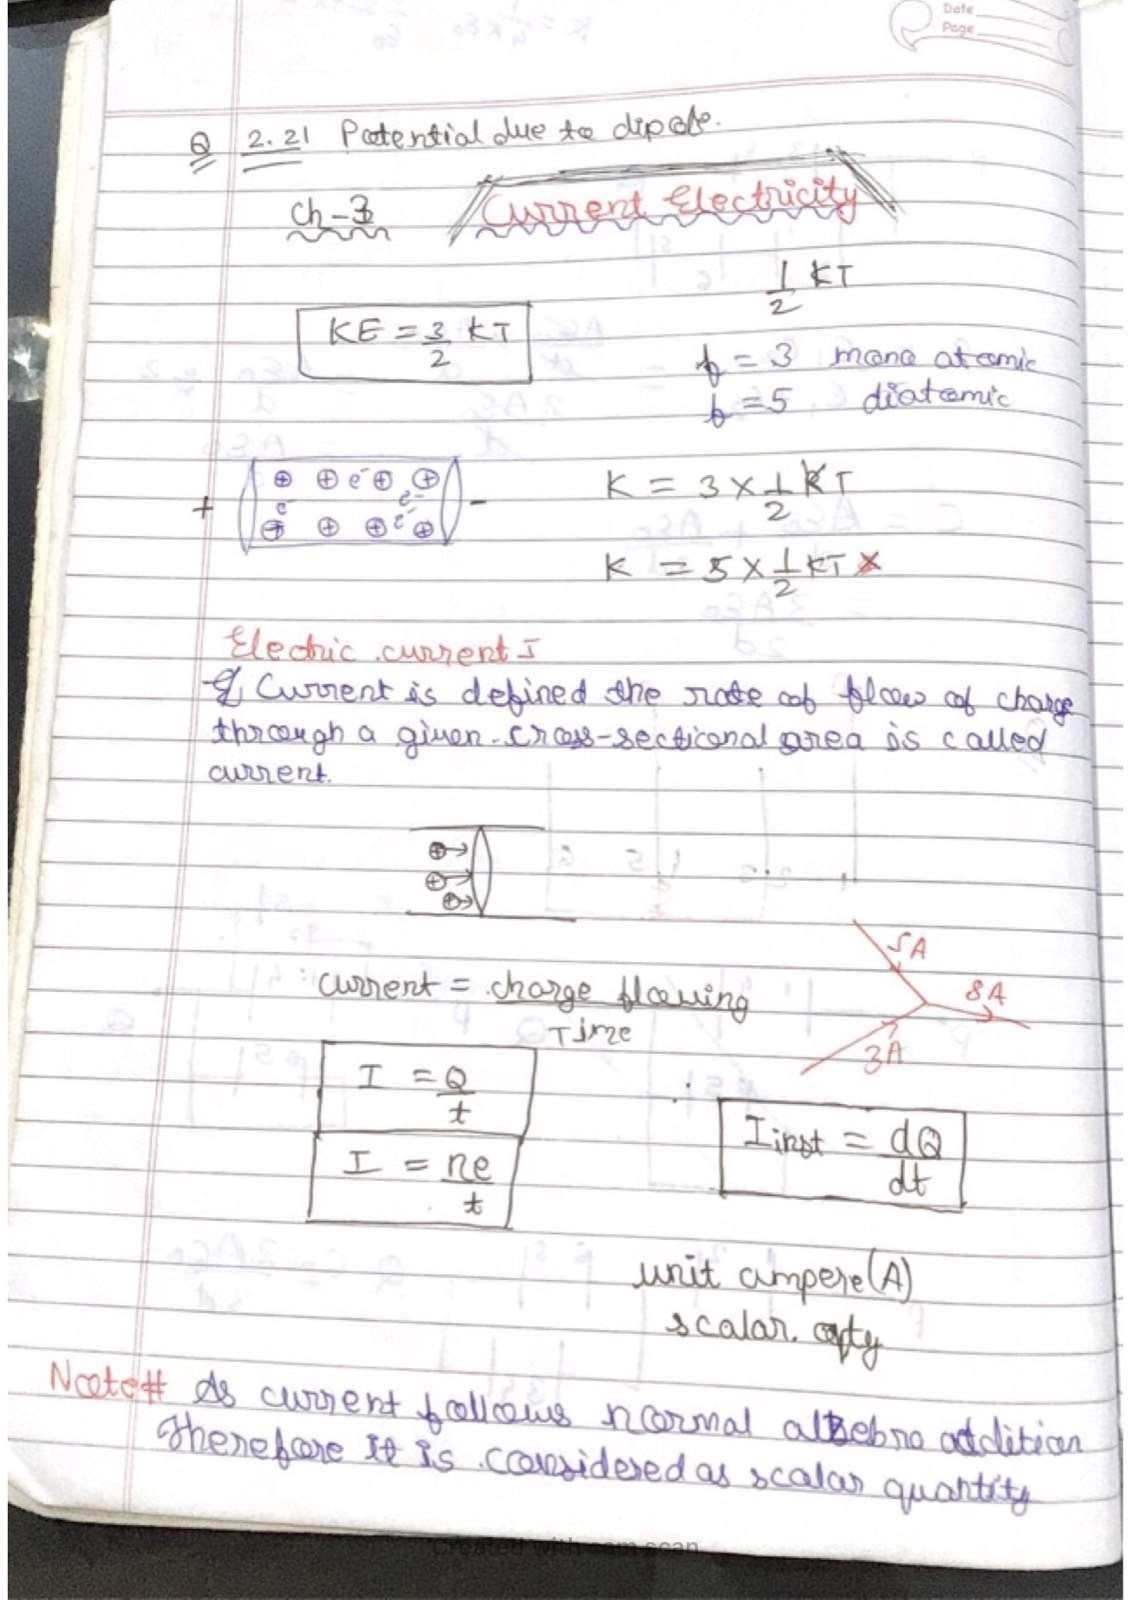 Date
Page
Q 2.21 Potential due to dipole.
Ch-3 Current Electricity
1/2 KT
KE = 3/2 KT
f = 3 mono atomic
f = 5 diatomic
+ ⊕ ⊕ e⁻ ⊕ ⊕ -
e⁻ e⁻
⊕ ⊕ ⊕ e⁻ ⊕
K = 3 × 1/2 KT
K = 5 × 1/2 KT ×
Electric current I
Current is defined the rate of flow of charge
through a given cross-sectional area is called
current.
⊕→
⊕→
⊕→
5A
8A
3A
current = charge flowing / Time
I = Q/t
I = ne/t
∴ Iinst = dQ/dt
unit ampere (A)
scalar qty
Note# As current follows normal algebra addition
Therefore it is considered as scalar quantity